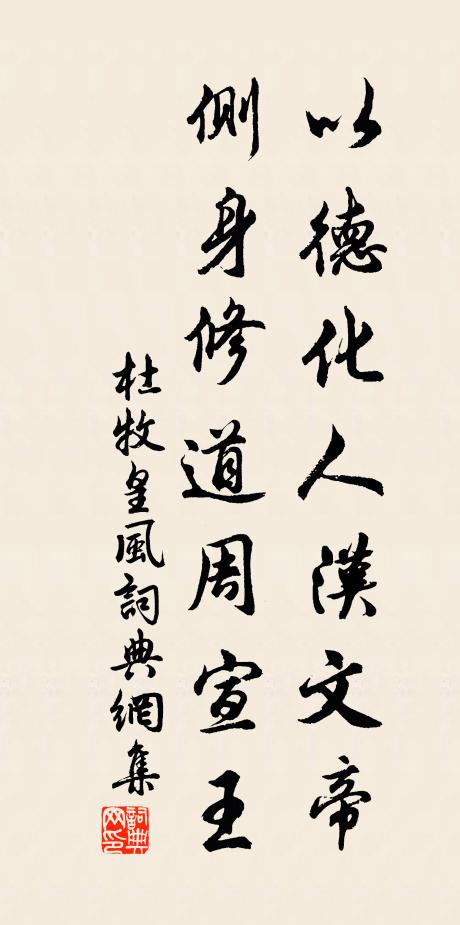 以德化人漢文帝
側身修道周宣王
杜牧皇風詞典網集
詞典网印